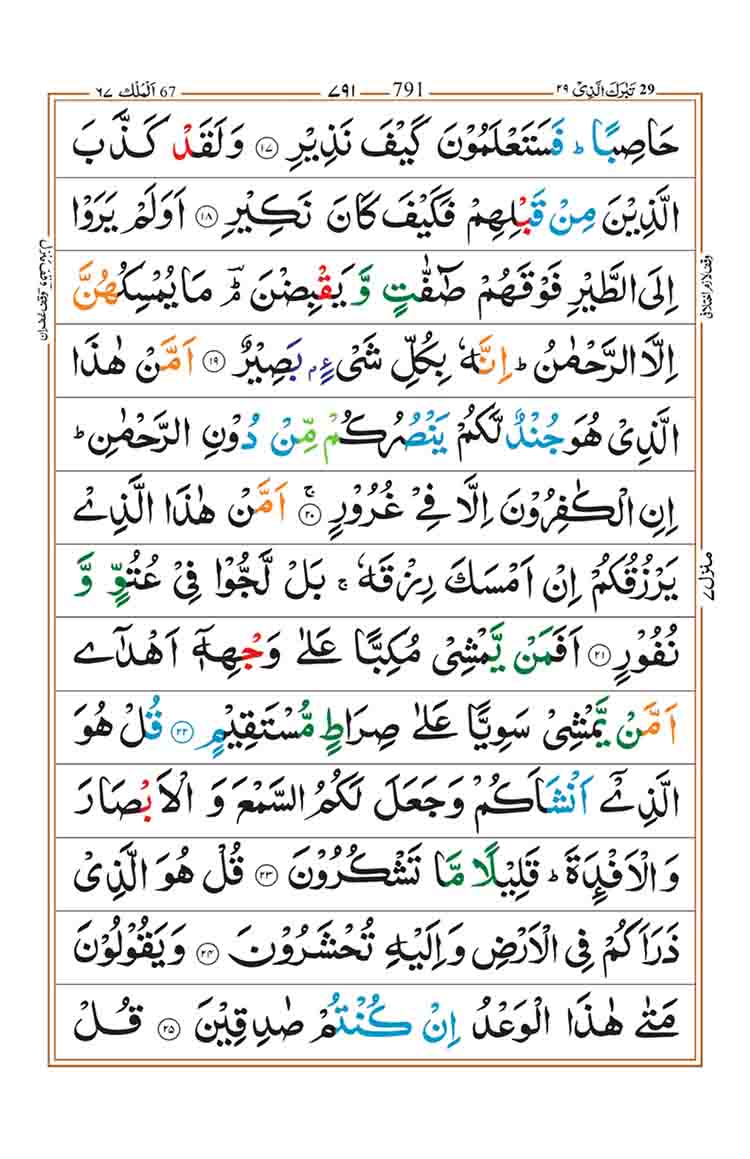 تَبٰرَكَ الَّذِیْ ٢٩ 29
٧٩١ 791
اَلْمُلْك ٦٧ 67
حَاصِبًا ؕ فَسَتَعْلَمُوْنَ كَیْفَ نَذِیْرِ ۝۱۷ وَلَقَدْ كَذَّبَ
الَّذِیْنَ مِنْ قَبْلِهِمْ فَكَیْفَ كَانَ نَكِیْرِ ۝۱۸ اَوَلَمْ یَرَوْا
اِلَی الطَّیْرِ فَوْقَهُمْ صٰٓفّٰتٍ وَّ یَقْبِضْنَ ؔۘؕ مَا یُمْسِكُهُنَّ
اِلَّا الرَّحْمٰنُ ؕ اِنَّهٗ بِكُلِّ شَیْءٍۭ بَصِیْرٌ ۝۱۹ اَمَّنْ هٰذَا
الَّذِیْ هُوَ جُنْدٌ لَّكُمْ یَنْصُرُكُمْ مِّنْ دُوْنِ الرَّحْمٰنِ ؕ
اِنِ الْكٰفِرُوْنَ اِلَّا فِیْ غُرُوْرٍ ۝۲۰ۚ اَمَّنْ هٰذَا الَّذِیْ
یَرْزُقُكُمْ اِنْ اَمْسَكَ رِزْقَهٗ ۚ بَلْ لَّجُّوْا فِیْ عُتُوٍّ وَّ
نُفُوْرٍ ۝۲۱ اَفَمَنْ یَّمْشِیْ مُكِبًّا عَلٰی وَجْهِهٖۤ اَهْدٰۤی
اَمَّنْ یَّمْشِیْ سَوِیًّا عَلٰی صِرَاطٍ مُّسْتَقِیْمٍ ۝۲۲ قُلْ هُوَ
الَّذِیْۤ اَنْشَاَكُمْ وَجَعَلَ لَكُمُ السَّمْعَ وَ الْاَبْصَارَ
وَ الْاَفْـِٕدَةَ ؕ قَلِیْلًا مَّا تَشْكُرُوْنَ ۝۲۳ قُلْ هُوَ الَّذِیْ
ذَرَاَكُمْ فِی الْاَرْضِ وَ اِلَیْهِ تُحْشَرُوْنَ ۝۲۴ وَیَقُوْلُوْنَ
مَتٰی هٰذَا الْوَعْدُ اِنْ كُنْتُمْ صٰدِقِیْنَ ۝۲۵ قُلْ
منزل ٧